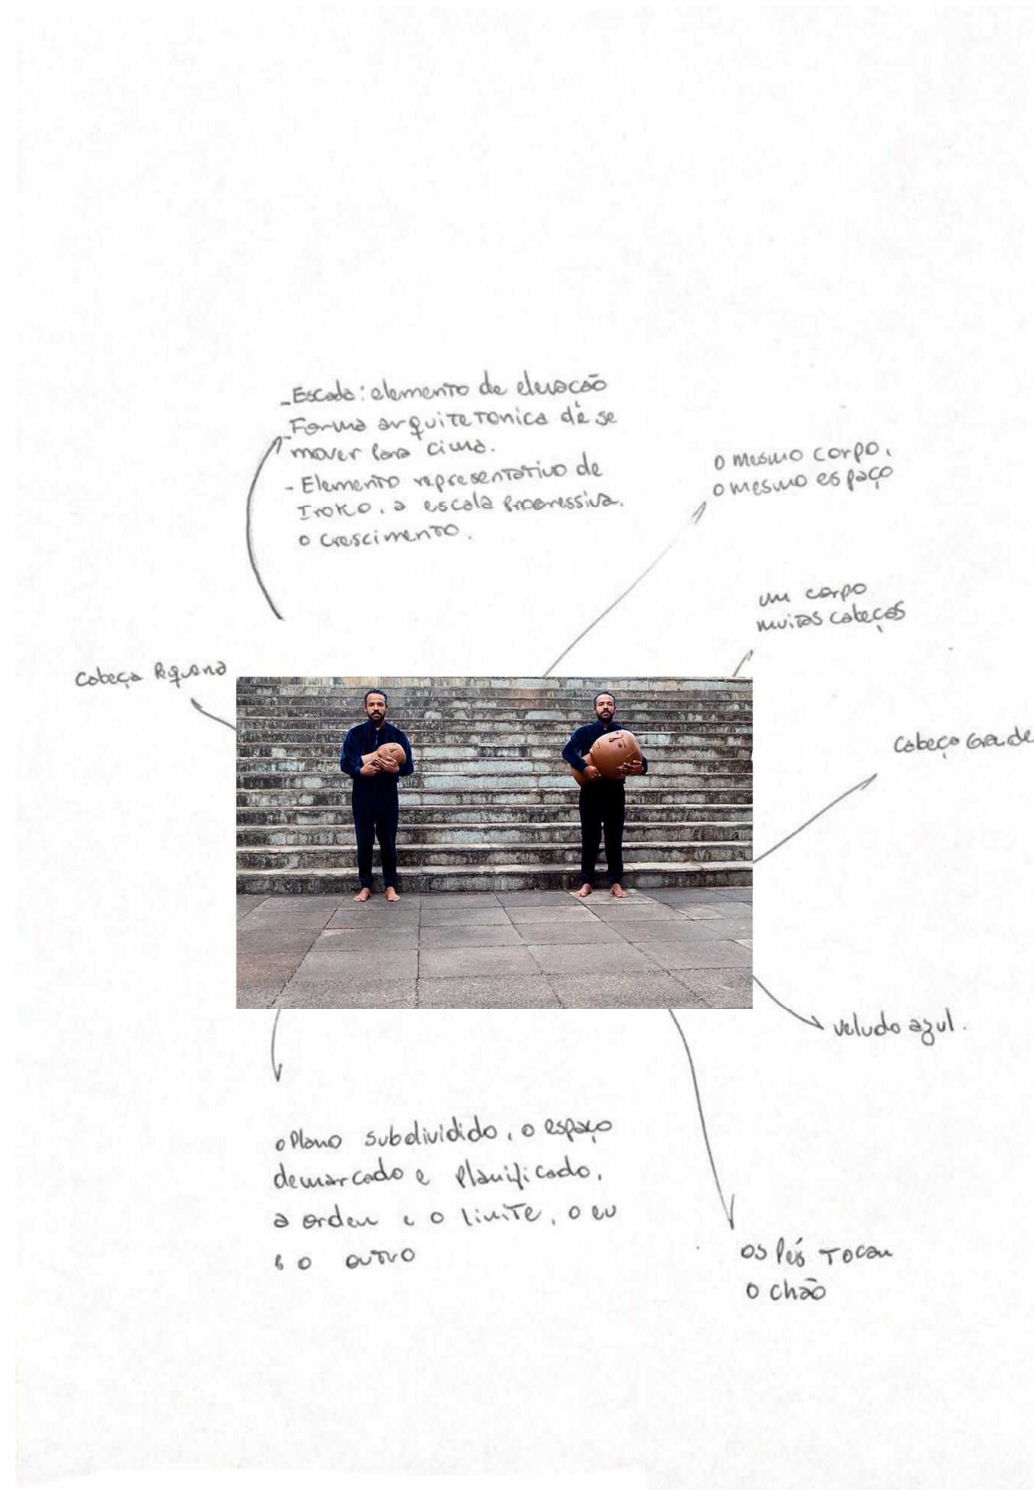 - Escada: elemento de elevação
Forma arquitetonica de se
mover para cima.
- Elemento representativo de
Iroko, a escala progressiva.
o crescimento.
o mesmo corpo,
o mesmo espaço
um corpo
muitas cabeças
Cabeça Pequena
Cabeça Grande
veludo azul.
o Plano subdividido, o espaço
demarcado e planificado,
a ordem e o limite, o eu
e o outro
os Pés Tocam
o chão